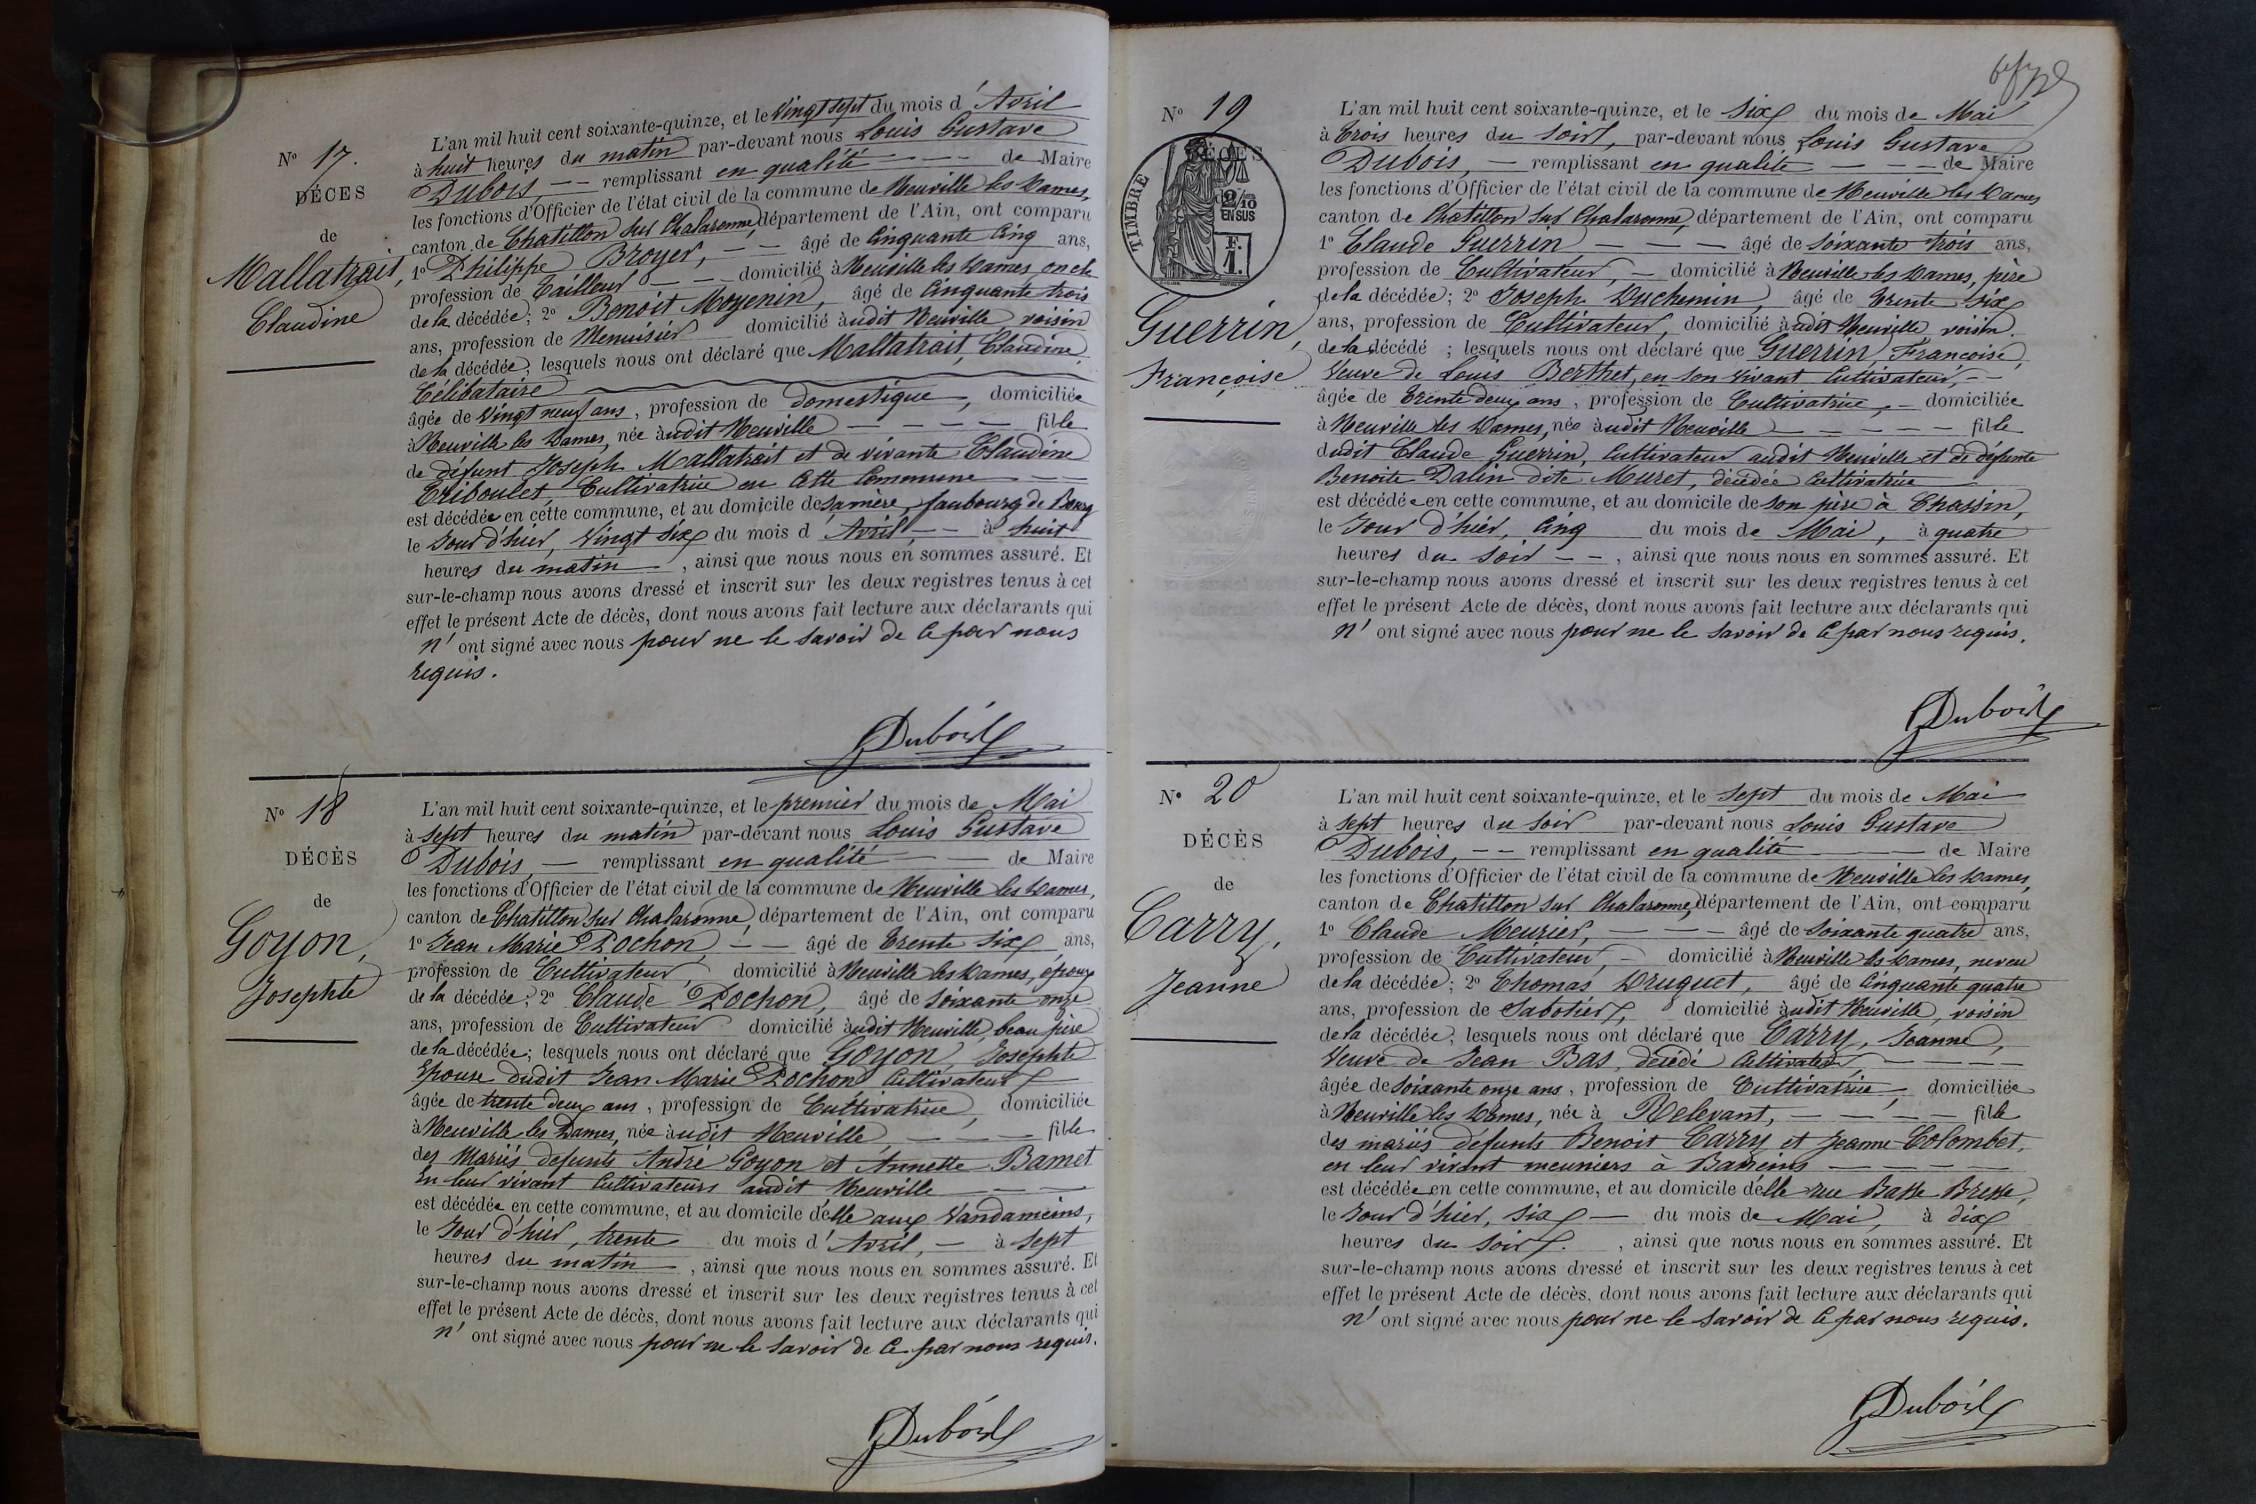 N° 17.
DÉCES
de
Mallatrait,
Claudine
L'an mil huit cent soixante-quinze, et le vingt sept du mois d'Avril
à huit heures du matin par-devant nous Louis Gustave
Dubois, — — remplissant en qualité — — — de Maire
les fonctions d'Officier de l'état civil de la commune de Neuville les Dames,
canton de Chatillon sur Chalaronne, département de l'Ain, ont comparu
1° Philippe Broyer, — — âgé de Cinquante Cinq ans,
profession de Tailleur — — domicilié à Neuville les Dames oncle
de la décédée; 2° Benoit Moyenin, âgé de Cinquante trois
ans, profession de Menuisier domicilié audit Neuville voisin
de la décédée, lesquels nous ont déclaré que Mallatrait, Claudine,
Célibataire
âgée de vingt neuf ans, profession de domestique, domiciliée
à Neuville les Dames, née audit Neuville — — — — fille
de défunt Joseph Mallatrait et de vivante Claudine
Triboulet, Cultivatrice en cette Commune — —
est décédée en cette commune, et au domicile de sa mère, faubourg de Bourg
le Jour d'hier, Vingt six du mois d'Avril, — — à huit
heures du matin —, ainsi que nous nous en sommes assuré. Et
sur-le-champ nous avons dressé et inscrit sur les deux registres tenus à cet
effet le présent Acte de décès, dont nous avons fait lecture aux déclarants qui
n'ont signé avec nous pour ne le savoir de ce par nous
requis.
Dubois
N° 18
DÉCÈS
de
Goyon,
Josephte
L'an mil huit cent soixante-quinze, et le premier du mois de Mai
à sept heures du matin par-devant nous Louis Gustave
Dubois, — remplissant en qualité — — de Maire
les fonctions d'Officier de l'état civil de la commune de Neuville les Dames,
canton de Chatillon sur Chalaronne, département de l'Ain, ont comparu
1° Jean Marie Pochon, — — âgé de trente six ans,
profession de Cultivateur, domicilié à Neuville les Dames, époux
de la décédée; 2° Claude Pochon, âgé de soixante onze
ans, profession de Cultivateur domicilié audit Neuville, beau père
de la décédée; lesquels nous ont déclaré que Goyon, Josephte
Epouse dudit Jean Marie Pochon Cultivateur
âgée de trente deux ans, profession de Cultivatrice, domiciliée
à Neuville les Dames, née audit Neuville, — — — fille
des Mariés défunts André Goyon et Annette Bamet
En leur vivant Cultivateurs audit Neuville — —
est décédée en cette commune, et au domicile d'elle aux Vandameins,
le Jour d'hier, trente du mois d'Avril, — à sept
heures du matin —, ainsi que nous nous en sommes assuré. Et
sur-le-champ nous avons dressé et inscrit sur les deux registres tenus à cet
effet le présent Acte de décès, dont nous avons fait lecture aux déclarants qui
n'ont signé avec nous pour ne le savoir de ce par nous requis.
Dubois
N° 19
TIMBRE
2/10
EN SUS
F.
1.
Guerrin,
Françoise
L'an mil huit cent soixante-quinze, et le six du mois de Mai
à trois heures du soir, par-devant nous Louis Gustave
Dubois, — remplissant en qualité — — — de Maire
les fonctions d'Officier de l'état civil de la commune de Neuville les Dames
canton de Chatillon sur Chalaronne, département de l'Ain, ont comparu
1° Claude Guerrin — — — âgé de soixante trois ans,
profession de Cultivateur, — domicilié à Neuville les Dames, père
de la décédée; 2° Joseph Duchemin, âgé de trente six
ans, profession de Cultivateur, domicilié audit Neuville voisin
de la décédé; lesquels nous ont déclaré que Guerrin, Françoise,
Veuve de Louis Berthet, en son vivant Cultivateur, —
âgée de trente deux ans, profession de Cultivatrice, — domiciliée
à Neuville les Dames, née audit Neuville — — — — — fille
dudit Claude Guerrin, Cultivateur audit Neuville et de défunte
Benoite Dalin dite Muret, décédée Cultivatrice
est décédée en cette commune, et au domicile de son père à Chassin,
le Jour d'hier, Cinq du mois de Mai, à quatre
heures du soir — —, ainsi que nous nous en sommes assuré. Et
sur-le-champ nous avons dressé et inscrit sur les deux registres tenus à cet
effet le présent Acte de décès, dont nous avons fait lecture aux déclarants qui
n'ont signé avec nous pour ne le savoir de ce par nous requis.
Dubois
N° 20
DÉCÈS
de
Carry,
Jeanne
L'an mil huit cent soixante-quinze, et le sept du mois de Mai
à sept heures du soir par-devant nous Louis Gustave
Dubois, — — remplissant en qualité — de Maire
les fonctions d'Officier de l'état civil de la commune de Neuville les Dames,
canton de Chatillon sur Chalaronne, département de l'Ain, ont comparu
1° Claude Meurier, — — — âgé de soixante quatre ans,
profession de Cultivateur, — domicilié à Neuville les Dames, neveu
de la décédée; 2° Thomas Druguet, âgé de Cinquante quatre
ans, profession de Sabotier, domicilié audit Neuville, voisin
de la décédée; lesquels nous ont déclaré que Carry, Jeanne,
Veuve de Jean Bas, décédé Cultivateur, — — — —
âgée de soixante onze ans, profession de Cultivatrice, domiciliée
à Neuville les Dames, née à Relevant, — — — — fille
des mariés défunts Benoit Carry et Jeanne Colombet,
en leur vivant meuniers à Baneins — — — — —
est décédée en cette commune, et au domicile d'elle rue Basse Bresse,
le Jour d'hier, six — du mois de Mai, à dix
heures du soir, ainsi que nous nous en sommes assuré. Et
sur-le-champ nous avons dressé et inscrit sur les deux registres tenus à cet
effet le présent Acte de décès, dont nous avons fait lecture aux déclarants qui
n'ont signé avec nous pour ne le savoir de ce par nous requis.
Dubois